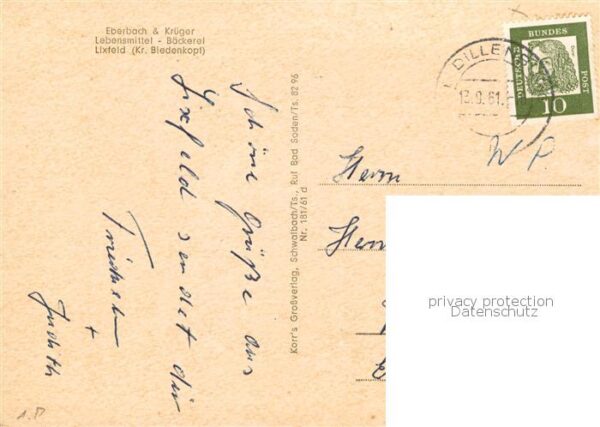 Eberbach & Krüger
Lebensmittel - Bäckerei
Lixfeld (Kr. Biedenkopf)
Schöne Grüße aus
Lixfeld sendet dir
+
Judith
Korr's Großverlag, Schwalbach/Ts., Ruf Bad Soden/Ts. 82 96
Nr. 181/61 d
DEUTSCHE BUNDES POST
10
13.9.61.
W P
Herrn
privacy protection
Datenschutz